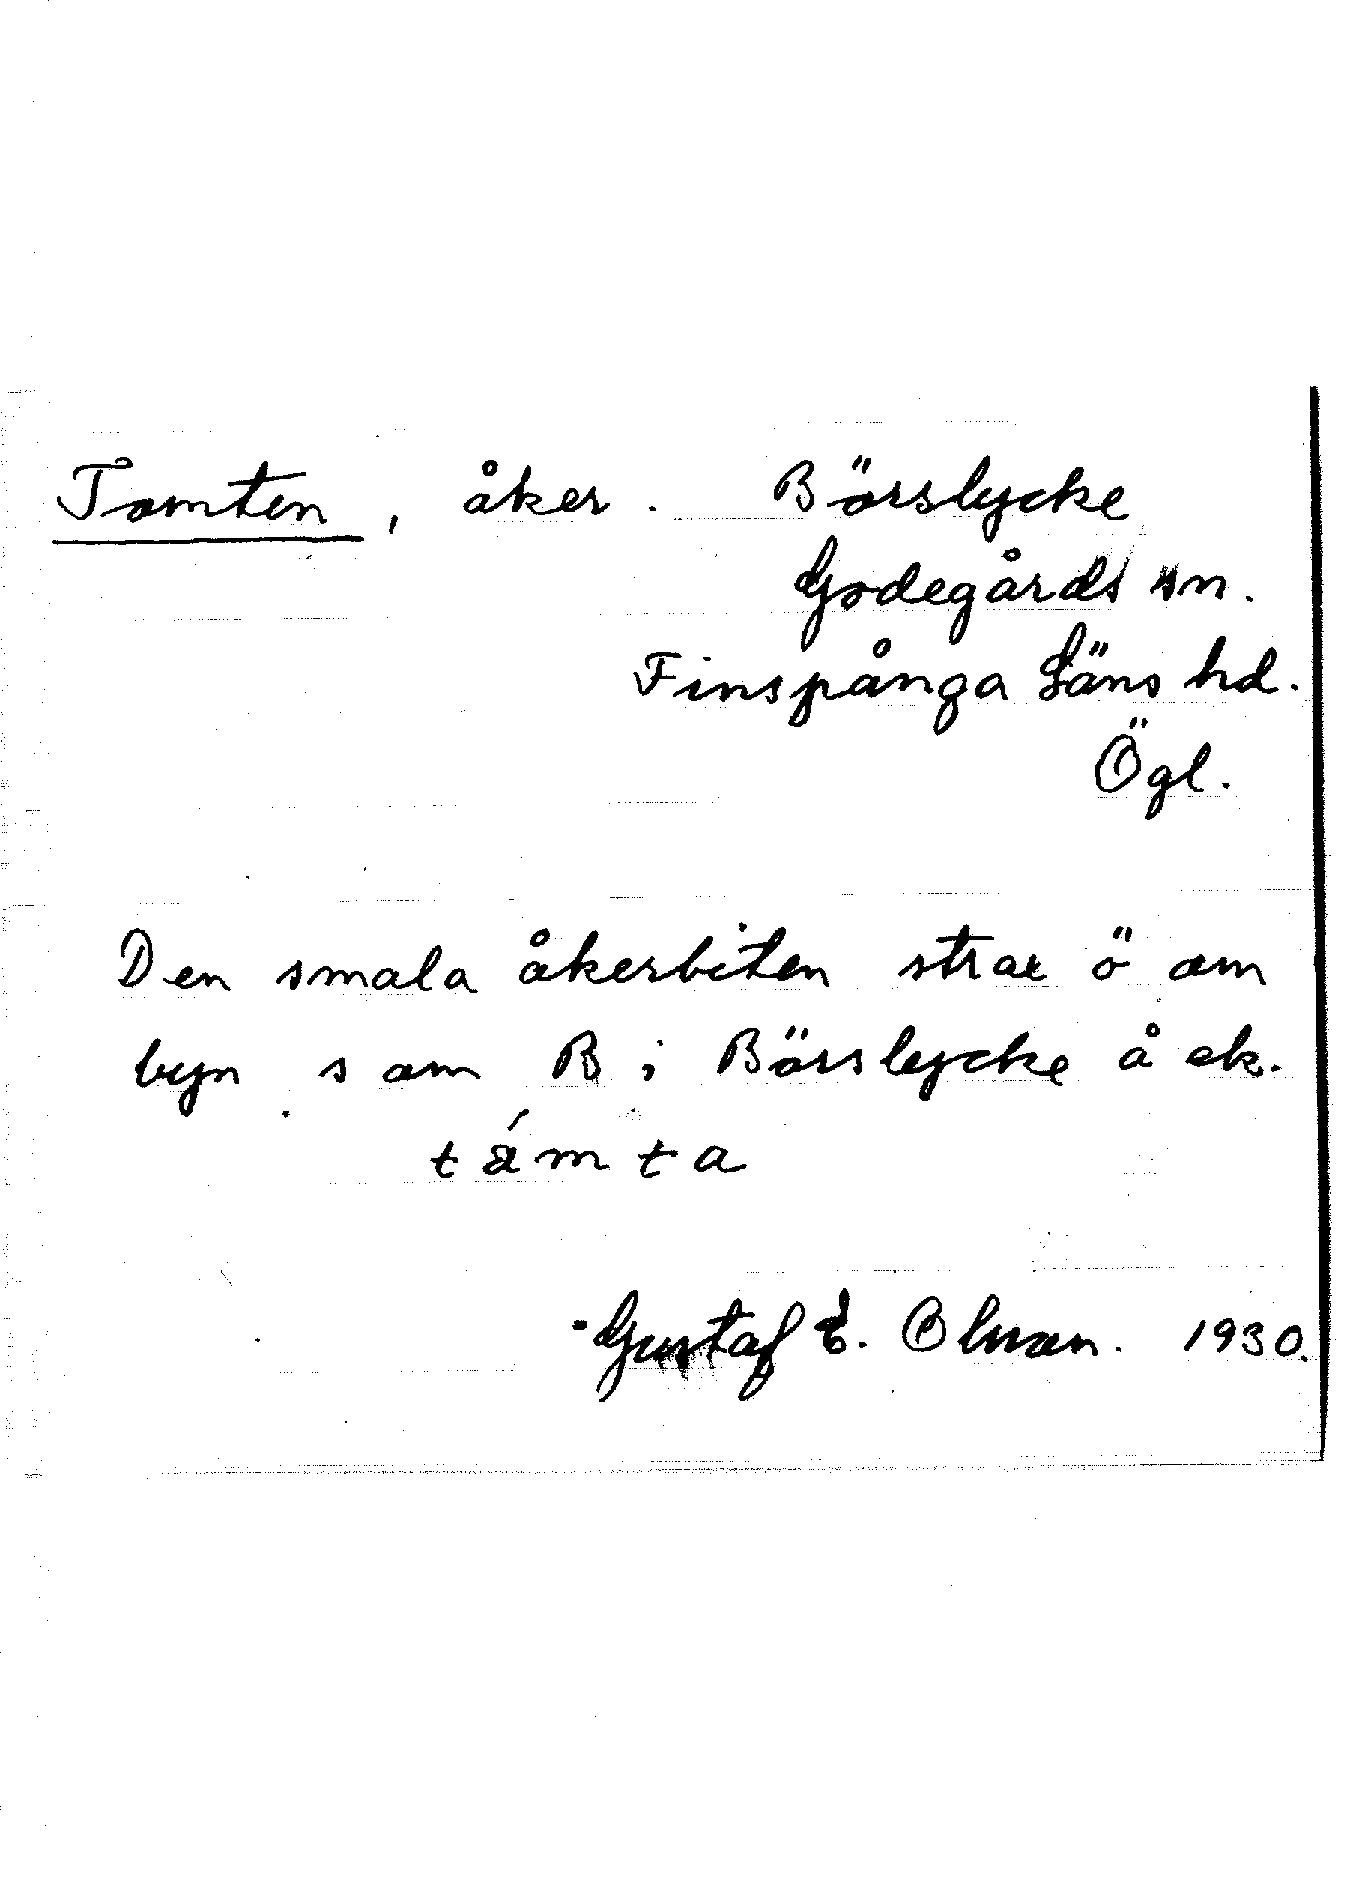 Tomten, åker. Börslycke
Godegårds sn.
Finspånga Läns hd.
Ögl.
Den smala åkerbiten strax ö om
byn som B i Börslycke å ek.
támta
Gustaf E. Olsson. 1930.